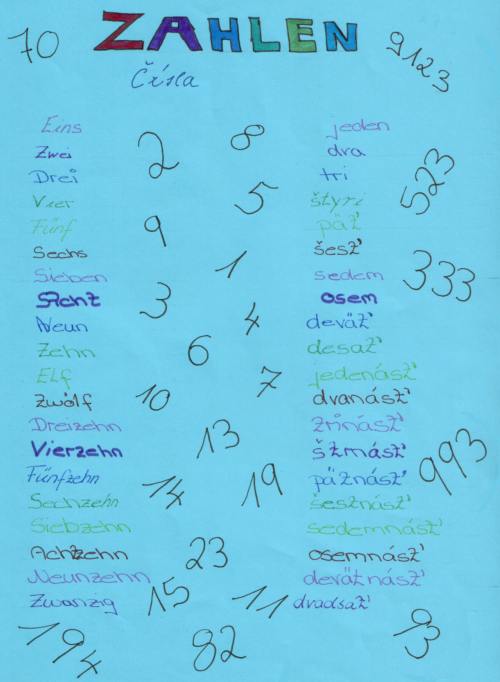 ZAHLEN
Čísla
70
9123
Eins
Zwei
Drei
Vier
Fünf
Sechs
Sieben
Neun
Zehn
Elf
Zwölf
Dreizehn
Vierzehn
Fünfzehn
Sechzehn
Siebzehn
Achtzehn
Neunzehn
Zwanzig
2
8
5
9
1
3
4
6
7
10
13
14
19
23
15
11
194
82
jeden
dva
tri
štyri
päť
šesť
sedem
osem
deväť
desať
jedenásť
dvanásť
trinásť
štrnásť
pätnásť
šestnásť
sedemnásť
osemnásť
devätnásť
dvadsať
523
333
993
93